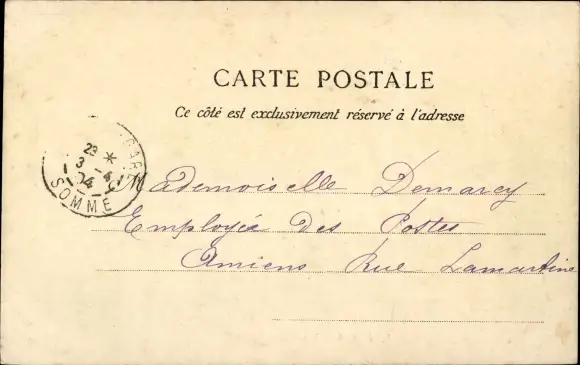 CARTE POSTALE
Ce côté est exclusivement réservé à l'adresse
GARE
23 *
3 - 4
04
SOMME
Mademoiselle Demarcy
Employée des Postes
Amiens Rue Lamartine